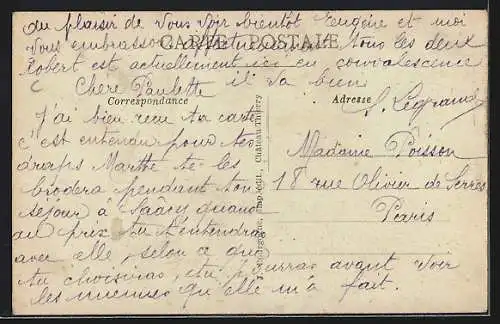 au plaisir de vous voir bientôt Eugène et moi
vous embrassons tous les deux
CARTE POSTALE
Robert est actuellement ici en convalescence
il va bien
Chère Paulette
S. Legrand
Correspondance
Adresse
J'ai bien reçu ta carte
c'est entendu pour tes
draps Marthe te les
brodera pendant ton
séjour à Saâcy quand
au prix tu t'entendras
avec elle, selon ce que
tu choisiras, tu pourras avant voir
les miennes qu'elle m'a fait.
Madame Poisson
18 rue Olivier de Serres
Paris
imp.-édit., Château-Thierry